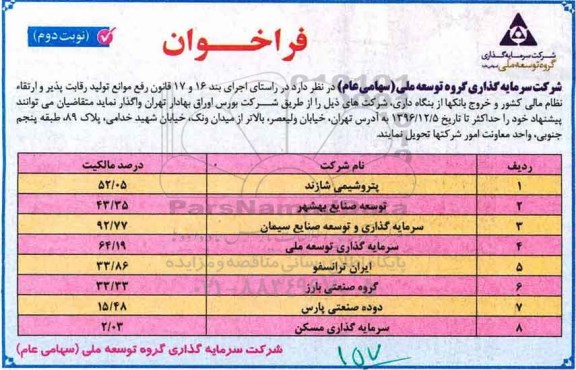 شرکت سرمایه گذاری
گروه توسعه ملی (سهامی عام)
فراخوان
(نوبت دوم)
شرکت سرمایه گذاری گروه توسعه ملی (سهامی عام) در نظر دارد در راستای اجرای بند ۱۶ و ۱۷ قانون رفع موانع تولید رقابت پذیر و ارتقاء
نظام مالی کشور و خروج بانکها از بنگاه داری، شرکت های ذیل را از طریق شرکت بورس اوراق بهادار تهران واگذار نماید متقاضیان می توانند
پیشنهاد خود را حداکثر تا تاریخ ۱۳۹۶/۱۲/۵ به آدرس تهران، خیابان ولیعصر، بالاتر از میدان ونک، خیابان شهید خدامی، پلاک ۸۹، طبقه پنجم
جنوبی، واحد معاونت امور شرکتها تحویل نمایند.
ردیف نام شرکت درصد مالکیت
۱ پتروشیمی شازند ۵۲/۰۵
۲ توسعه صنایع بهشهر ۴۳/۳۵
۳ سرمایه گذاری و توسعه صنایع سیمان ۹۲/۷۷
۴ سرمایه گذاری توسعه ملی ۶۴/۱۹
۵ ایران ترانسفو ۳۳/۸۶
۶ گروه صنعتی بارز ۳۳/۳۳
۷ دوده صنعتی پارس ۱۵/۴۸
۸ سرمایه گذاری مسکن ۲/۰۳
شرکت سرمایه گذاری گروه توسعه ملی (سهامی عام)
۱۵۷